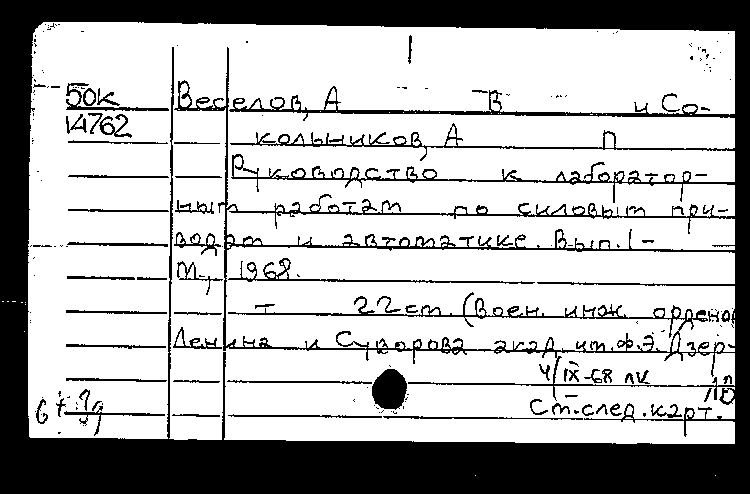 50к Веселов, А В и Со-
14762 кольников, А П
Руководство к лаборатор-
ным работам по силовым при-
водам и автоматике. Вып. 1-
М., 1968.
— 22 см. (Воен. инж. орденов
Ленина и Суворова акад. им. Ф.Э. Дзер-
4/IX-68 лк
См. след. карт.